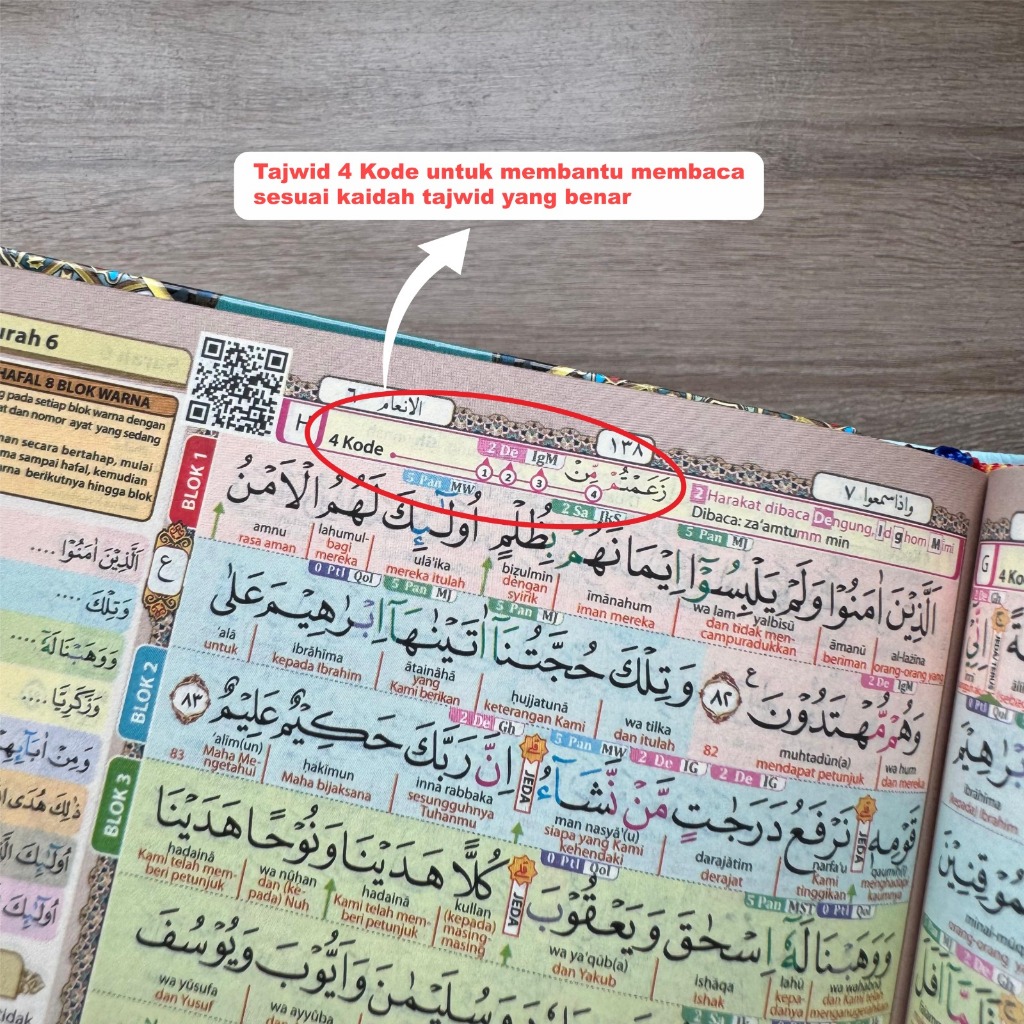 Tajwid 4 Kode untuk membantu membaca
sesuai kaidah tajwid yang benar
urah 6
HAFAL 8 BLOK WARNA
pada setiap blok warna dengan
at dan nomor ayat yang sedang
an secara bertahap, mulai
ma sampai hafal, kemudian
rna berikutnya hingga blok
الَّذِيْنَ اٰمَنُوْا ....
وَتِلْكَ ....
وَوَهَبْنَا لَهٗ
وَزَكَرِيَّا ....
الانعام ٦
١٣٨
واذاسمعوا ٧
H
4 Kode
2 De IgM
زَعَمْتُمْ مِّنْ
1 2 3 4
2 Harakat dibaca Dengung, Idghom Mimi
Dibaca: za'amtumm min
BLOK 1
5 Pan MW
2 Sa IkS
5 Pan MJ
الَّذِيْنَ اٰمَنُوْا وَلَمْ يَلْبِسُوْٓا اِيْمَانَهُمْ بِظُلْمٍ اُولٰۤىِٕكَ لَهُمُ الْاَمْنُ
al-lażīna
orang-orang yang
āmanū
beriman
wa lam yalbisū
dan tidak men-
campuradukkan
īmānahum
iman mereka
biẓulmin
dengan
syirik
ulā'ika
mereka itulah
lahumul-
bagi
mereka
amnu
rasa aman
2 De IgM
5 Pan MJ
5 Pan MJ
0 Ptl Qol
وَهُمْ مُّهْتَدُوْنَ ٨٢ وَتِلْكَ حُجَّتُنَآ اٰتَيْنٰهَآ اِبْرٰهِيْمَ عَلٰى
wa hum
dan mereka
muhtadūn(a)
mendapat petunjuk
82
wa tilka
dan itulah
ḥujjatunā
keterangan Kami
ātaināhā
yang
Kami berikan
ibrāhīma
kepada Ibrahim
'alā
untuk
BLOK 2
2 De IG
2 De IG
5 Pan MW
2 De Gh
قَوْمِهٖ نَرْفَعُ دَرَجٰتٍ مَّنْ نَّشَاۤءُ اِنَّ رَبَّكَ حَكِيْمٌ عَلِيْمٌ ٨٣
JEDA
JEDA
qaumih(ī)
menghadapi
kaumnya
narfa'u
Kami
tinggikan
darajātim
derajat
man nasyā'(u)
siapa yang Kami
kehendaki
inna rabbaka
sesungguhnya
Tuhanmu
ḥakīmun
Maha bijaksana
'alīm(un)
Maha Me-
ngetahui
83
BLOK 3
5 Pan MST
0 Ptl Qol
0 Ptl Qol
وَوَهَبْنَا لَهٗٓ اِسْحٰقَ وَيَعْقُوْبَ كُلًّا هَدَيْنَا وَنُوْحًا هَدَيْنَا
JEDA
wa wahabnā
dan Kami telah
menganugerahkan
lahū
kepa-
danya
isḥāqa
Ishak
wa ya'qūb(a)
dan Yakub
kullan
(kepada)
masing-
masing
hadainā
Kami telah mem-
beri petunjuk
wa nūḥan
dan (ke-
pada) Nuh
hadainā
Kami telah mem-
beri petunjuk
وَسُلَيْمٰنَ وَاَيُّوْبَ وَيُوْسُفَ
wa ayyūba
wa yūsufa
dan Yusuf
G